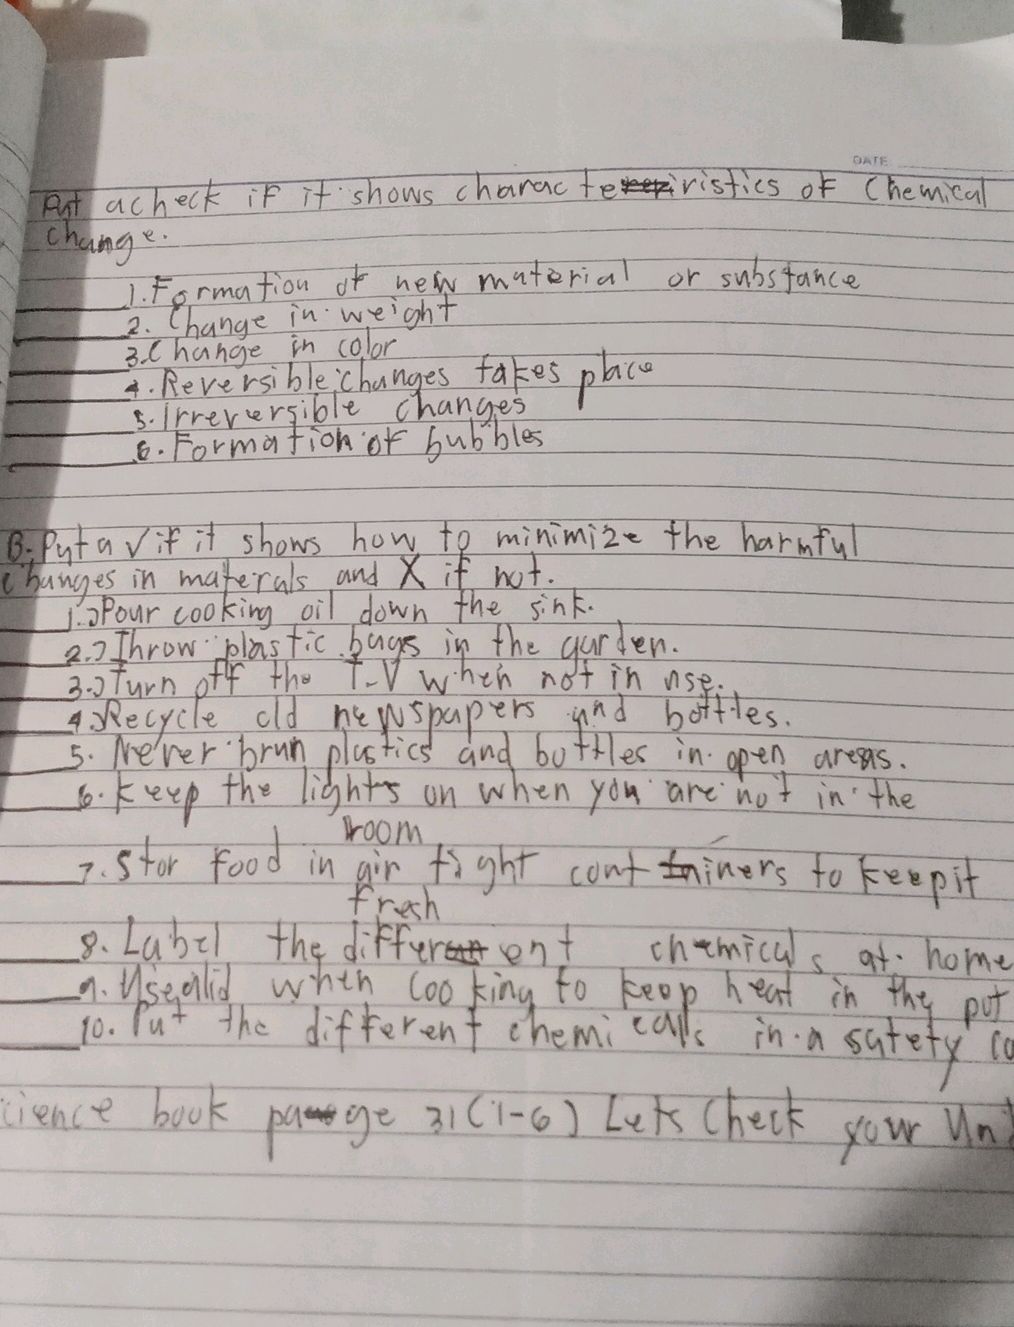 DATE
Put a check if it shows characteristics of Chemical
change.
1. Formation of new material or substance
2. Change in weight
3. Change in color
4. Reversible changes takes place
5. Irreversible changes
6. Formation of bubbles
B. Put a √ if it shows how to minimize the harmful
changes in materals and X if not.
1.) Pour cooking oil down the sink.
2.) Throw plastic bags in the garden.
3.) Turn off the T-V when not in use.
4. Recycle old newspapers and bottles.
5. Never brun plastics and bottles in open areas.
6. Keep the lights on when you are not in the
room
7. Stor food in air tight containers to keep it
fresh
8. Label the different chemicals at home
9. Use a lid when cooking to keep heat in the pot
10. Put the different chemicals in a safety co
cience book page 31 (1-6) Lets Check your Un